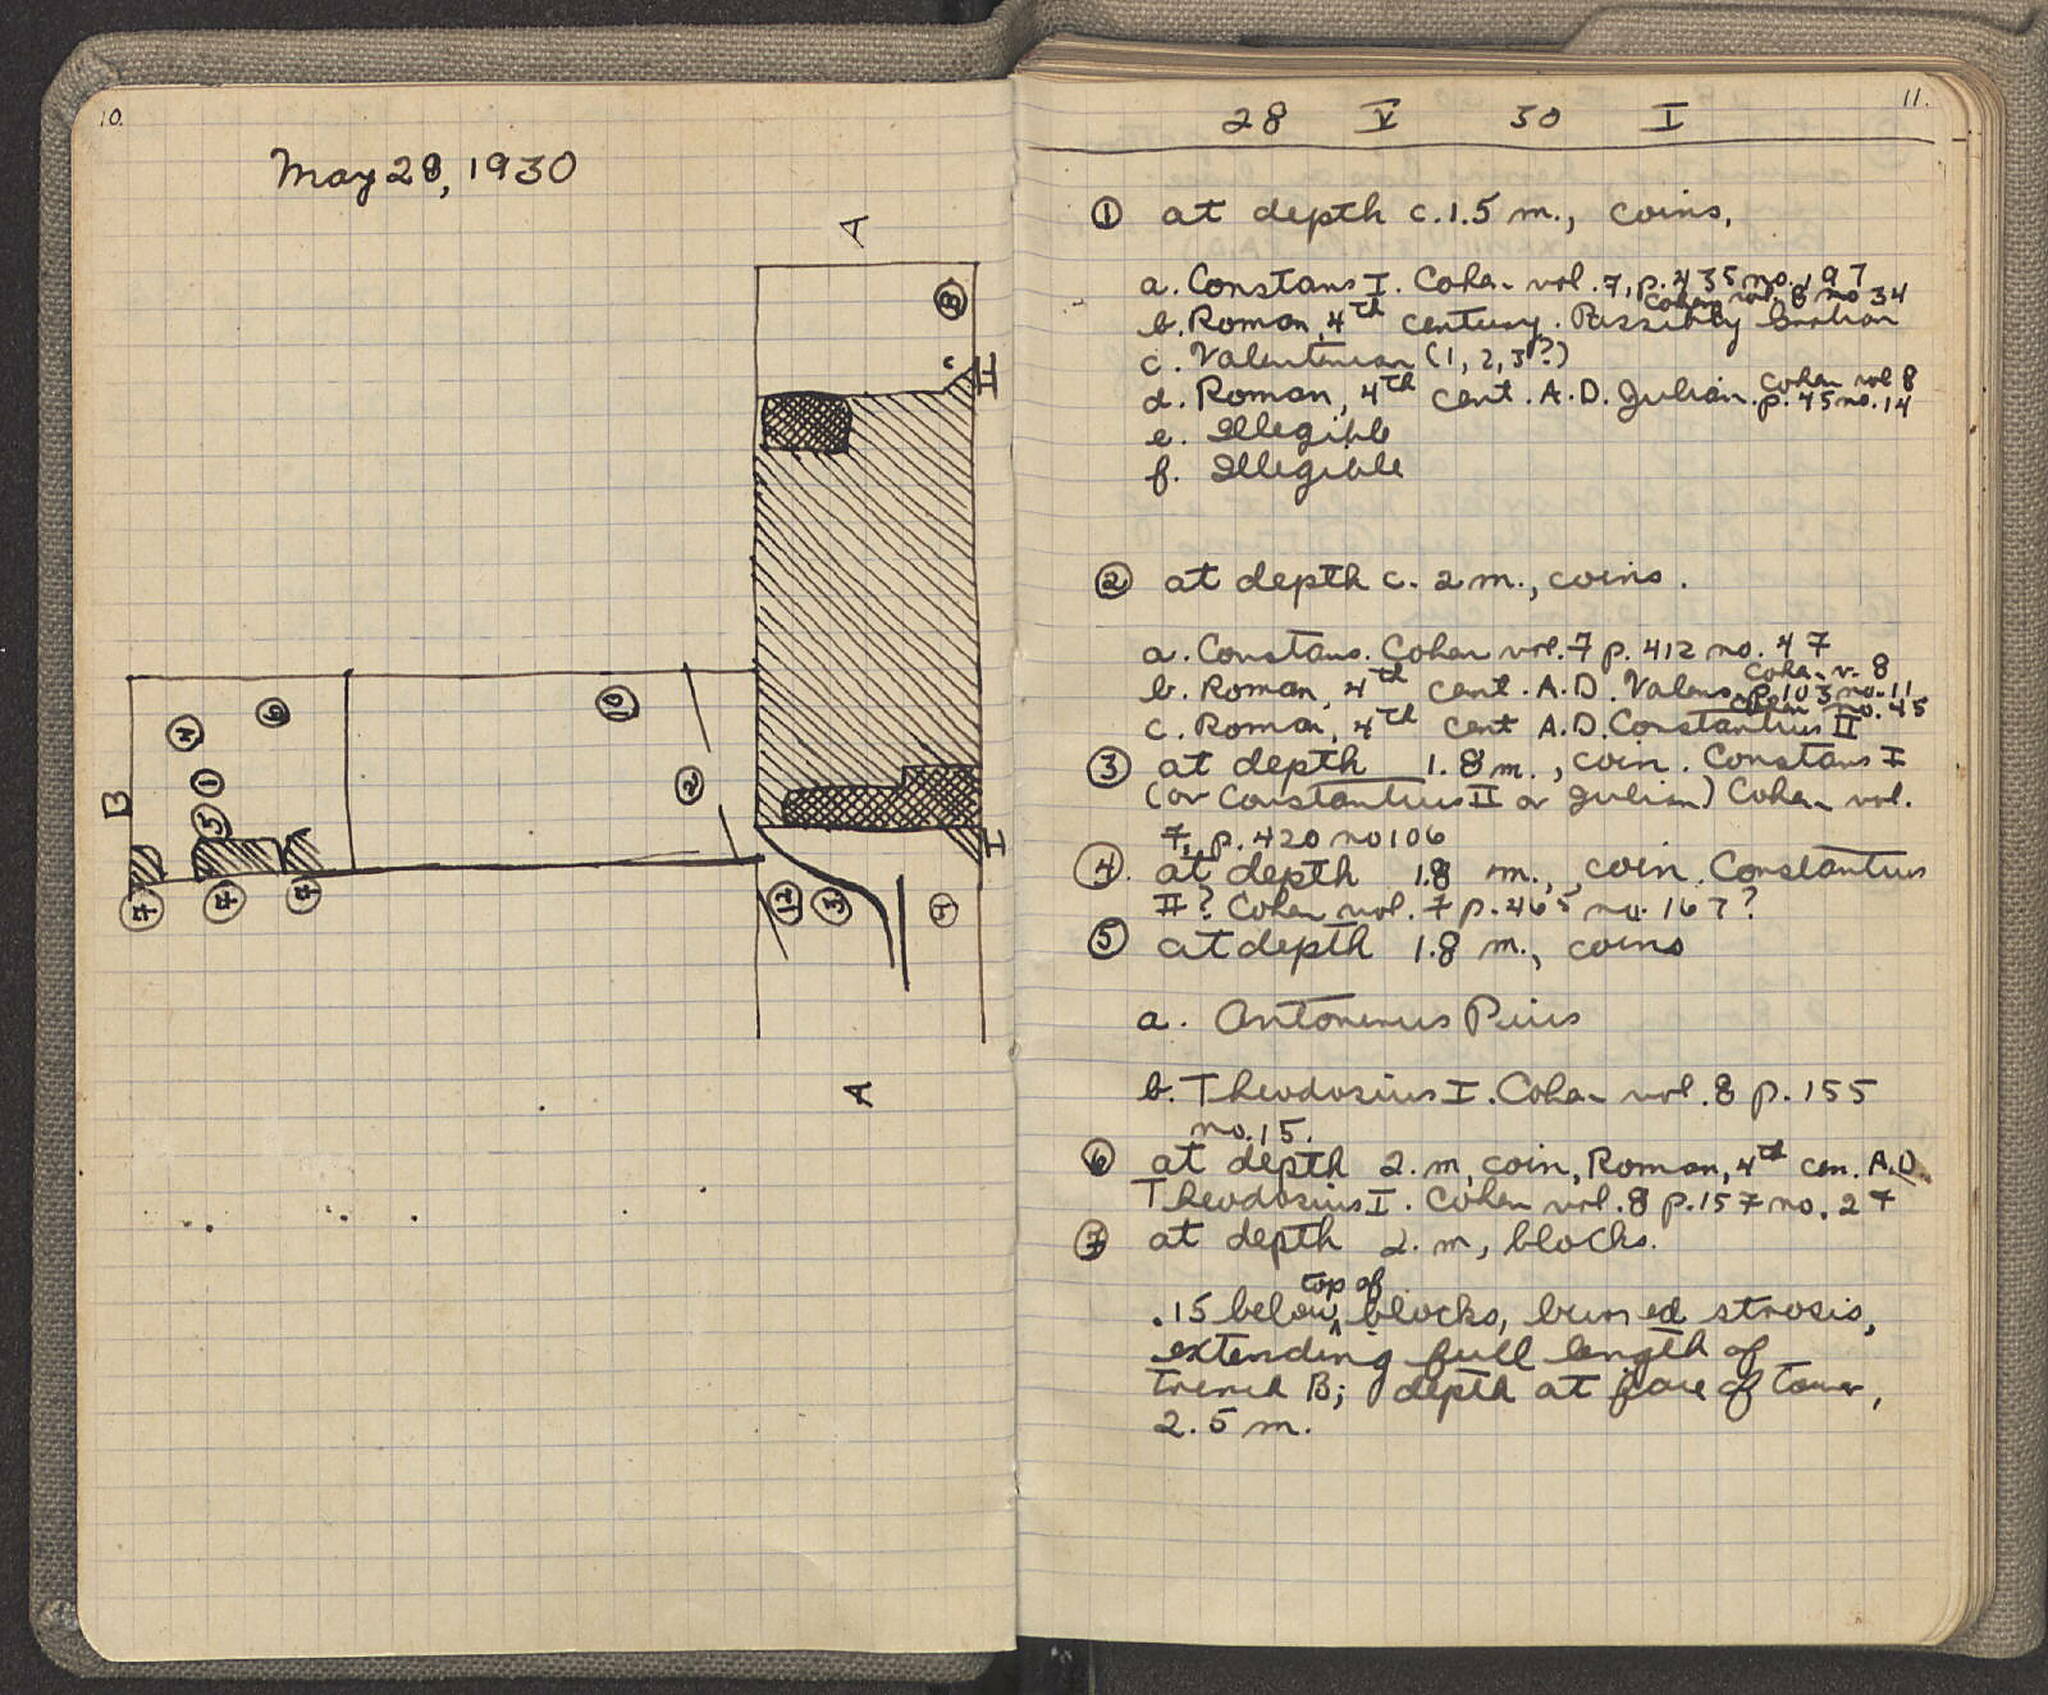 10.
May 28, 1930
A
8
II
6
10
4
1
2
B
5
I
7
7
7
12
3
A
11.
28 V 30 I
① at depth c. 1.5 m., coins,
a. Constans I. Cohen vol. 7, p. 435 no. 197
Cohen vol. 8 no 34
b. Roman, 4th century. Possibly Gratian
c. Valentinian (1, 2, 3?)
Cohen vol 8
d. Roman, 4th cent. A.D. Julian. p. 45 no. 14
e. Illegible
f. Illegible
② at depth c. 2 m., coins.
a. Constans. Cohen vol. 7 p. 412 no. 47
Cohen v. 8
b. Roman, 4th cent. A.D. Valens p. 103 no. 11
Cohen no. 45
c. Roman, 4th cent A.D. Constantius II
③ at depth 1.8 m., coin. Constans I
(or Constantius II or Julian) Cohen vol.
7, p. 420 no 106
④. at depth 1.8 m., coin. Constantius
II? Cohen vol. 7 p. 465 no. 167?
⑤ at depth 1.8 m., coins
a. Antoninus Pius
b. Theodosius I. Cohen vol. 8 p. 155
no. 15.
⑥ at depth 2. m, coin, Roman, 4th cen. A.D.
Theodosius I. Cohen vol. 8 p. 157 no. 27
⑦ at depth 2. m, blocks.
top of
.15 below ^ blocks, burned strosis,
extending full length of
trench B; depth at face of tower,
2.5 m.